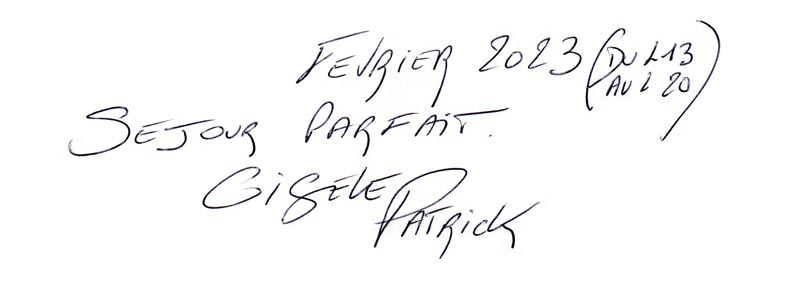 FEVRIER 2023 (DU L 13
AU L 20)
SEJOUR PARFAIT.
GISELE
PATRICK